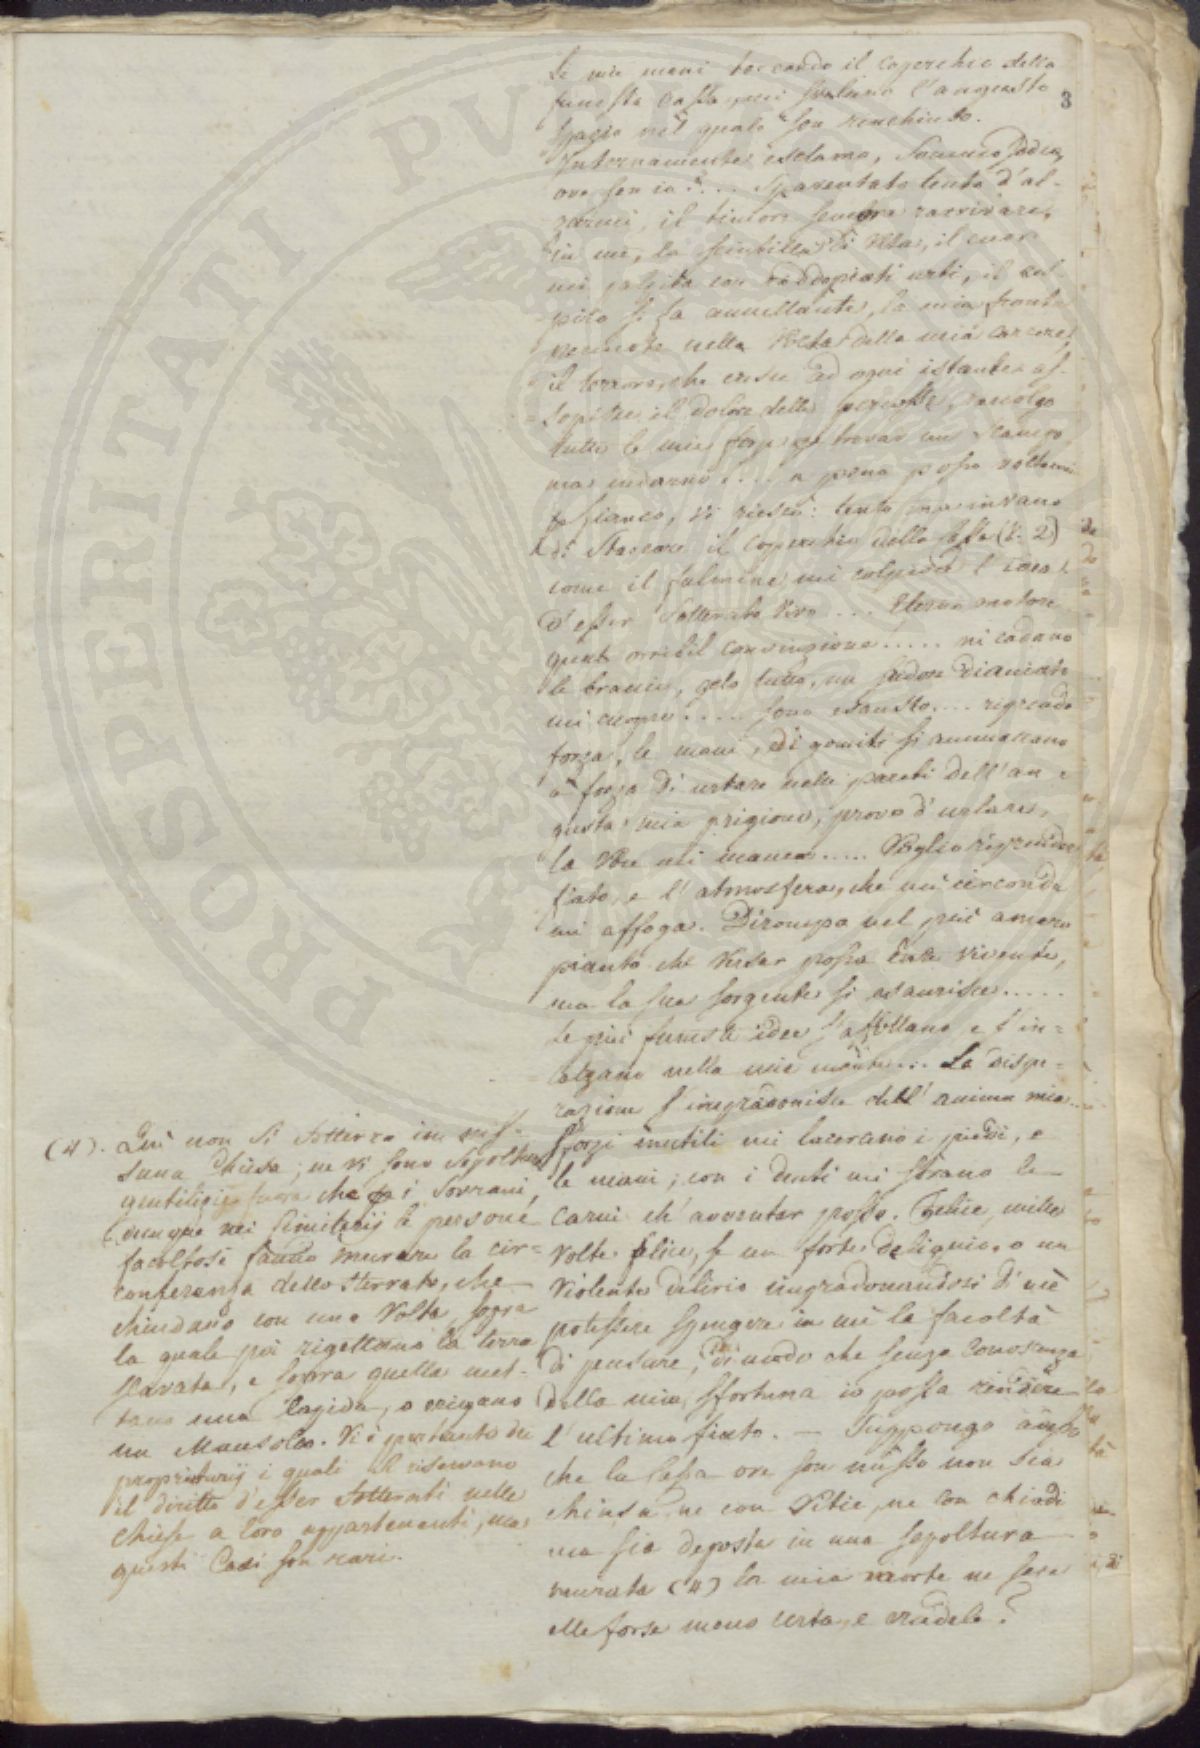 3
le mie mani toccando il coperchio della
funesta Cassa, mi svelano l'angusto
spazio nel quale son rinchiuso.
Internamente esclamo, Sommo Iddio,
ove son io?.... Spaventato tento d'al-
zarmi, il timore sembra ravvivare
in me, la scintilla di Vita, il cuor
mi palpita con raddoppiati urti, il
la mia fronte
percuote nella Volta della mia carcere,
il terrore, che cresce ad ogni istante as-
sopisce il dolore delle percosse, raccolgo
tutte le mie forze per trovar uno scampo
ma indarno!.... a pena posso voltarmi
di fianco, vi riesco: tento ma invano
di staccare il coperchio della Cassa (N. 2)
come il fulmine mi colpisce l'idea
d'esser Sotterrato Vivo .... Eterno motore
quest' orribil convinzione..... mi cadano
le braccia, gelo tutto, un sudore diacciato
mi cuopre..... sono esausto.... riprendo
forza, le mani, ed i gomiti si ammaccano
a forza di urtare nelle pareti dell'an-
gusta mia prigione; provo d'urlare,
la Voce mi manca..... Voglio riprender
fiato, e l'atmosfera, che mi circonda
mi affoga. Dirompo nel più amaro
pianto che Versar possa Ente vivente,
ma la sua sorgente si esaurisce.....
le più funeste idee s'affollano e s'in-
calzano nella mia mente... La dispe-
razione s'impadronisce dell'anima mia...
Sforzi inutili mi lacerano i piedi, e
le mani; con i denti mi strano le
carni ch'avventar posso. Felice, mille
Volte felice, se un forte deliquio, o un
Violento delirio impadronendosi di me
potessere spengere in me la facoltà
di pensare, di modo che senza Conoscenza
della mia sfortuna io possa rendere
l'ultimo fiato. — Suppongo anco
che la Cassa ove son messo non sia
chiusa ne con Vitie, ne con chiodi
ma sia deposta in una sepoltura
murata (4) la mia morte ne sara
ella forse meno certa, e crudele?
(4). Qui non si Sotterra in nes-
suna Chiesa; ne vi sono Sepolture
gentilizie fuora che pe i Sovrani,
Comunque nei Cimiterij le persone
facoltosi fanno murare la cir=
conferenza dello sterrato, che
chiudano con una Volta, sopra
la quale poi rigettano la terra
scavata, e sopra quella met-
tano una lapida, o erigano
un Mausoleo. Vi è pertanto dei
proprietarij i quali si riservano
il diritto d'esser Sotterrati nelle
Chiese a loro appartenenti, ma
questi Casi son rari.
PROSPERITATI